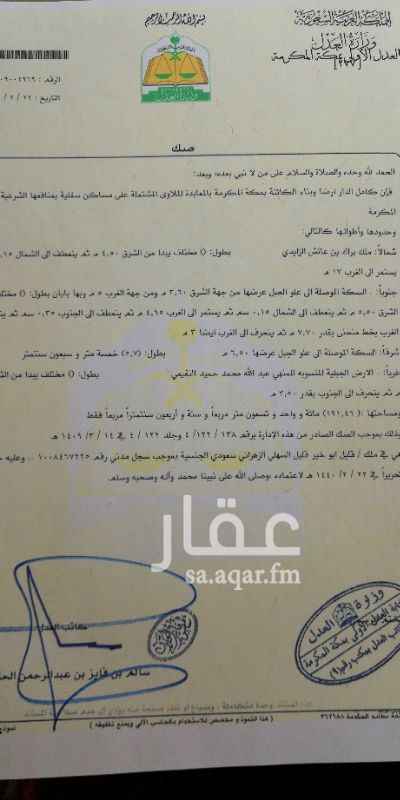 بسم الله الرحمن الرحيم
المملكة العربية السعودية
وزارة العدل
[٢٧٧]
العدل الأولى بمكة المكرمة
الرقم :
التاريخ :
صك
الحمد لله وحده والصلاة والسلام على من لا نبي بعده، وبعد:
فإن كامل الدار ارضا وبناء الكائنة بمكة المكرمة بالمعابدة للملاوي المشتملة على مساكن سفلية بمنافعها الشرعية
المكرمة
وحدودها وأطوالها كالتالي:
شمالاً: ملك براك بن عائش الزايدي بطول: () مختلف يبدا من الشرق ٤,٥٠ م ثم ينعطف الى الشمال
يستمر الى الغرب ١٢ م
جنوباً: السكة الموصلة الى علو الجبل عرضها من جهة الشرق ٣,٦٠ ومن جهة الغرب ٥ م وبها بابان بطول: ()
الشرق ٥,٥٠ م ثم ينعطف الى الشمال ٠,١٥ سم ثم يستمر الى الغرب ٤,٦٥ م ثم ينعطف الى الجنوب ٠,٣٥ سم ثم
الغرب بخط منحنى بقدر ٧,٧٠ م ثم ينحرف الى الغرب ايضا ٣ م
شرقاً: السكة الموصلة الى علو الجبل عرضها ٦,٥٠ م بطول: (٥,٧) خمسة متر و سبعون سنتمتر
غرباً: الارض الجبلية المنسوبه للمنهي عبد الله محمد حميد النفيعي بطول: () مختلف يبدا من
م ثم ينحرف الى الجنوب بقدر ٣,٥٠ م
ومساحتها :( ١٩١,٤٦) مائة و واحد و تسعون متر مربعاً و ستة و أربعون سنتمتراً مربعاً فقط
بذلك بموجب الصك الصادر من هذه الإدارة برقم ١٣٨ / ١٢٢ / ٤ وجلد ١٢٢ / ٤ في ١٤ / ٣ / ١٤٠٩ هـ
هي في ملك / قليل ابو خير قليل السهلي الزهراني سعودي الجنسية بموجب سجل مدني رقم ١٠٠٨٤٦٧٢٢٥
تحريراً في ٢٢ / ٢ / ١٤٤٠ هـ لاعتماده، وصلى الله على نبينا محمد وآله وصحبه وسلم.
عقار
sa.aqar.fm
كاتب العدل
سالم بن فايز بن عبدالرحمن
وزارة العدل
( هذا النموذج مخصص للاستخدام بالحاسب الآلي ويمنع تغليفه )